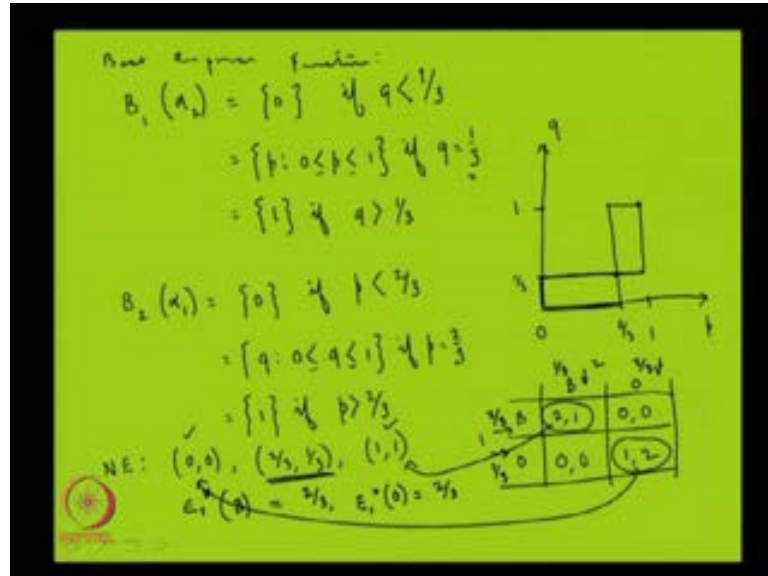 Best response function:
B₁(α₂) = {0} if q < 1/3
= {p: 0≤p≤1} if q = 1/3
= {1} if q > 1/3
B₂(α₁) = {0} if p < 2/3
= {q: 0≤q≤1} if p = 2/3
= {1} if p > 2/3
NE: (0,0), (2/3, 1/3), (1,1)
E₁(B) = 2/3, E₁(0) = 2/3
q
1
1/3
0 2/3 1 p
2
1/3 2/3
B 0
2/3 B 2,1 0,0
1
1/3 0 0,0 1,2
NPTEL